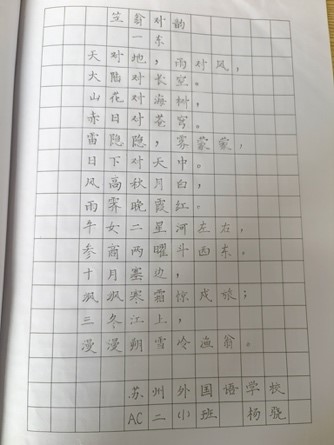 笠翁对韵
一东
天对地，雨对风，
大陆对长空。
山花对海树，
赤日对苍穹。
雷隐隐，雾蒙蒙，
日下对天中。
风高秋月白，
雨霁晚霞红。
牛女二星河左右，
参商两曜斗西东。
十月塞边，
飒飒寒霜惊戍旅；
三冬江上，
漫漫朔雪冷渔翁。
苏州外国语学校
AC二（1）班 杨骁